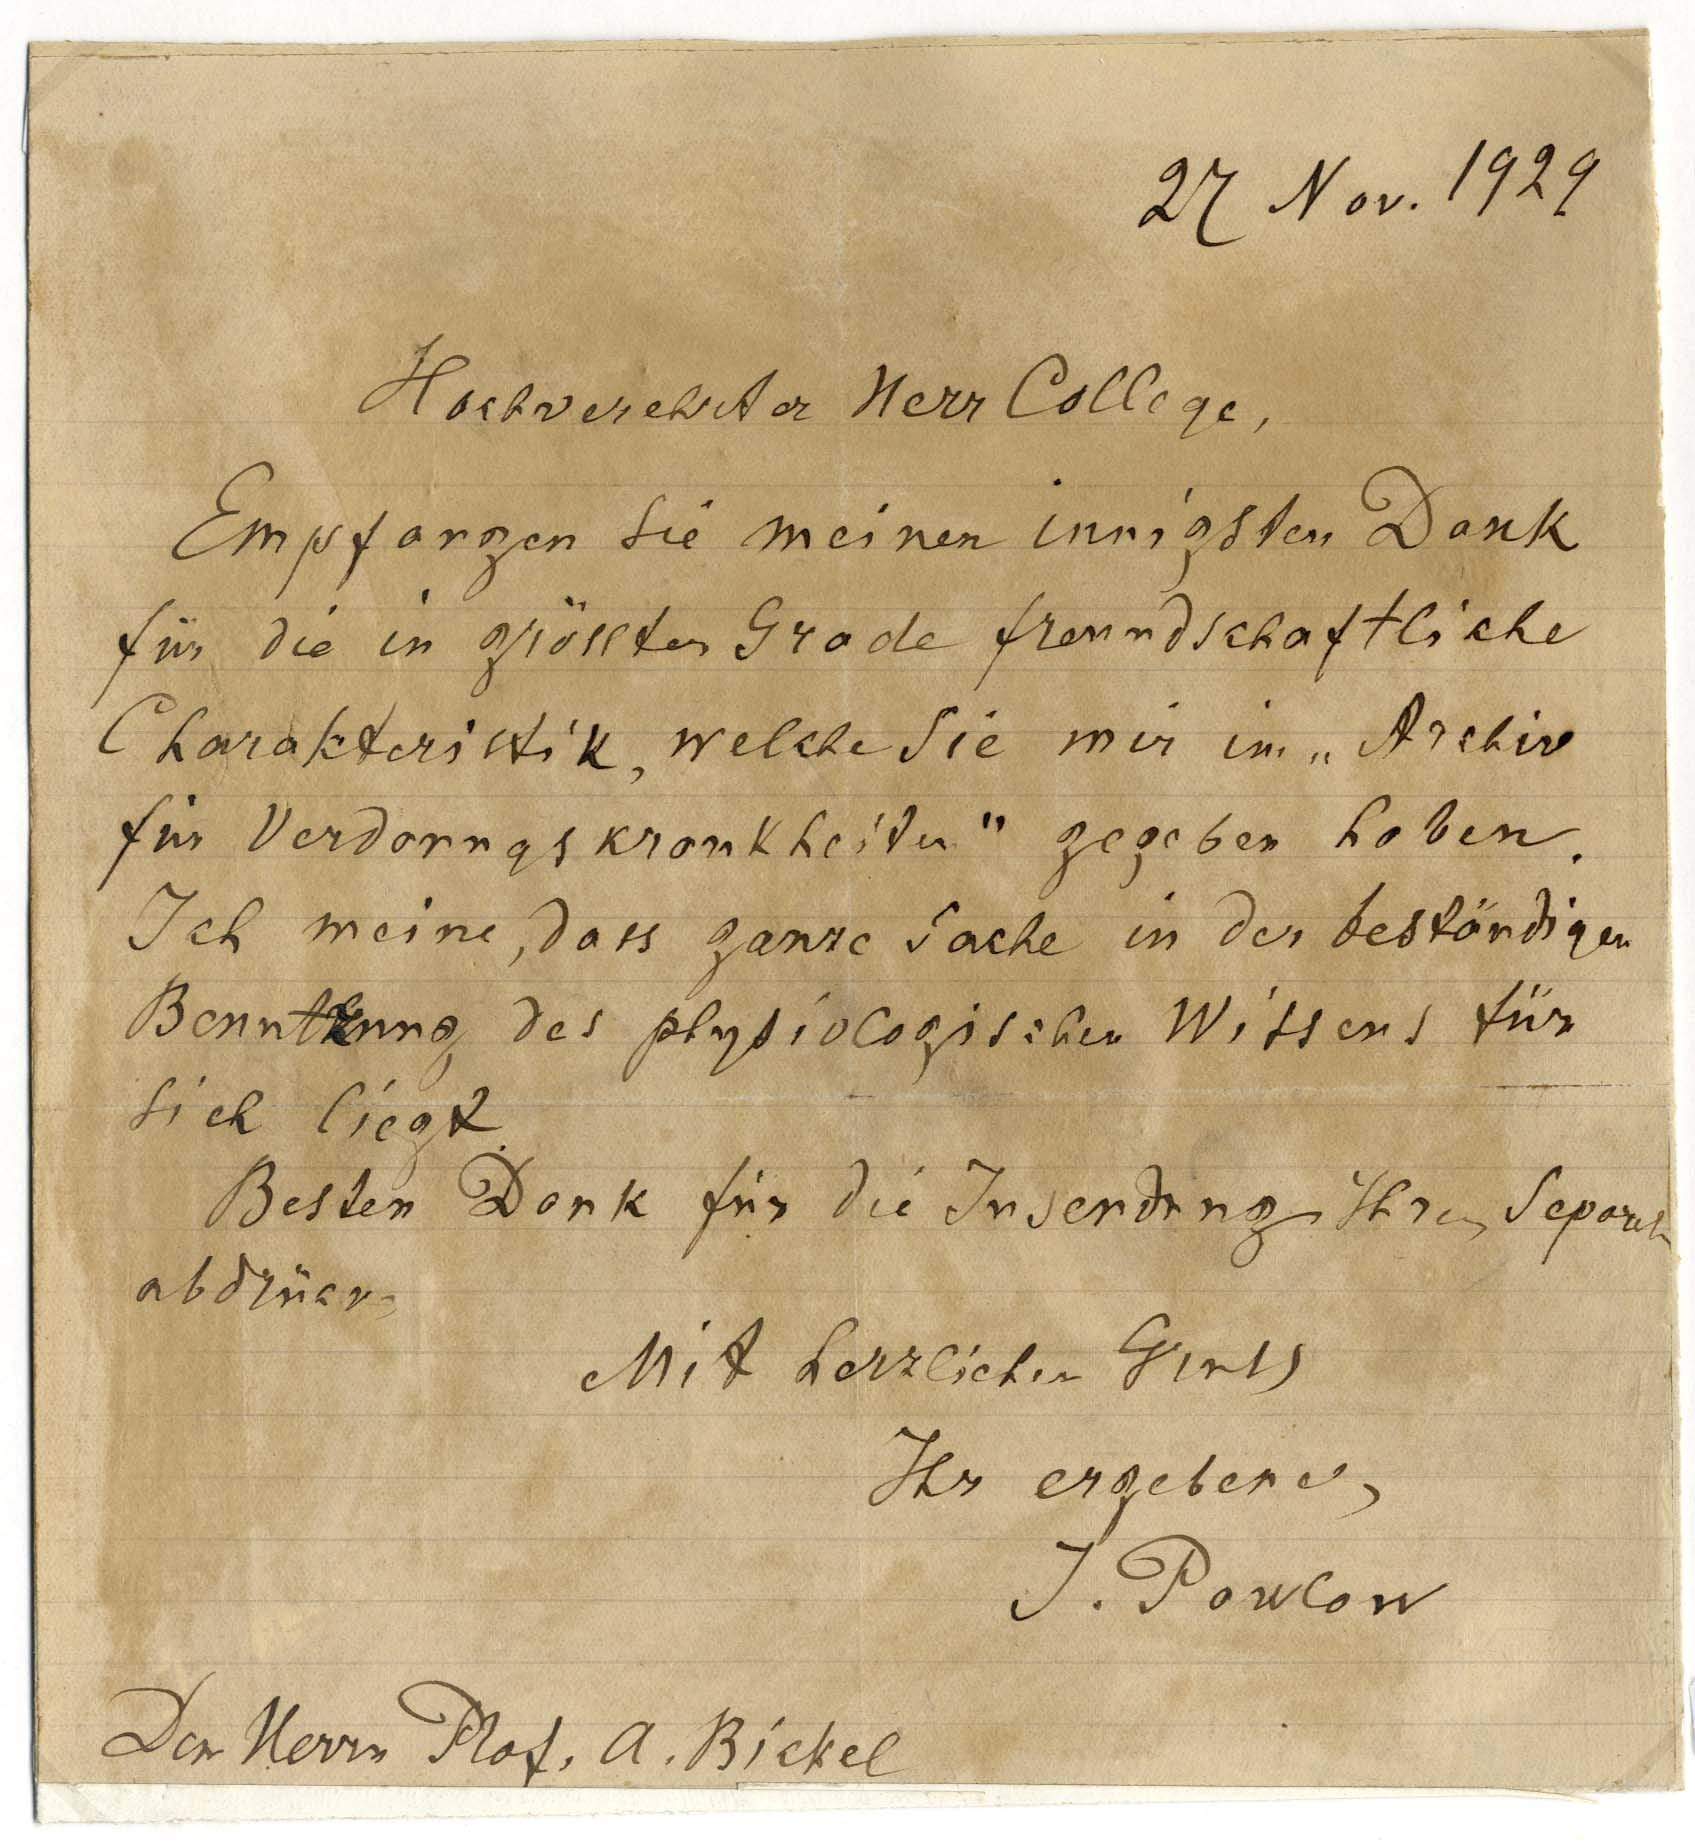 27 Nov. 1929
Hochverehrter Herr College,
Empfangen Sie meinen innigsten Dank
für die in grössten Grade freundschaftliche
Charakteristik, welche Sie mir im „Archiv
für Verdaungskrankheiten" gegeben haben.
Ich meine, dass ganze Sache in der beständigen
Benutzung des physiologischen Wissens für
sich liegt.
Besten Dank für die Zusendung Ihrer Separat-
abdrücke.
Mit herzlichen Gruss
Ihr ergebener,
J. Pawlow
Den Herrn Prof. A. Bickel